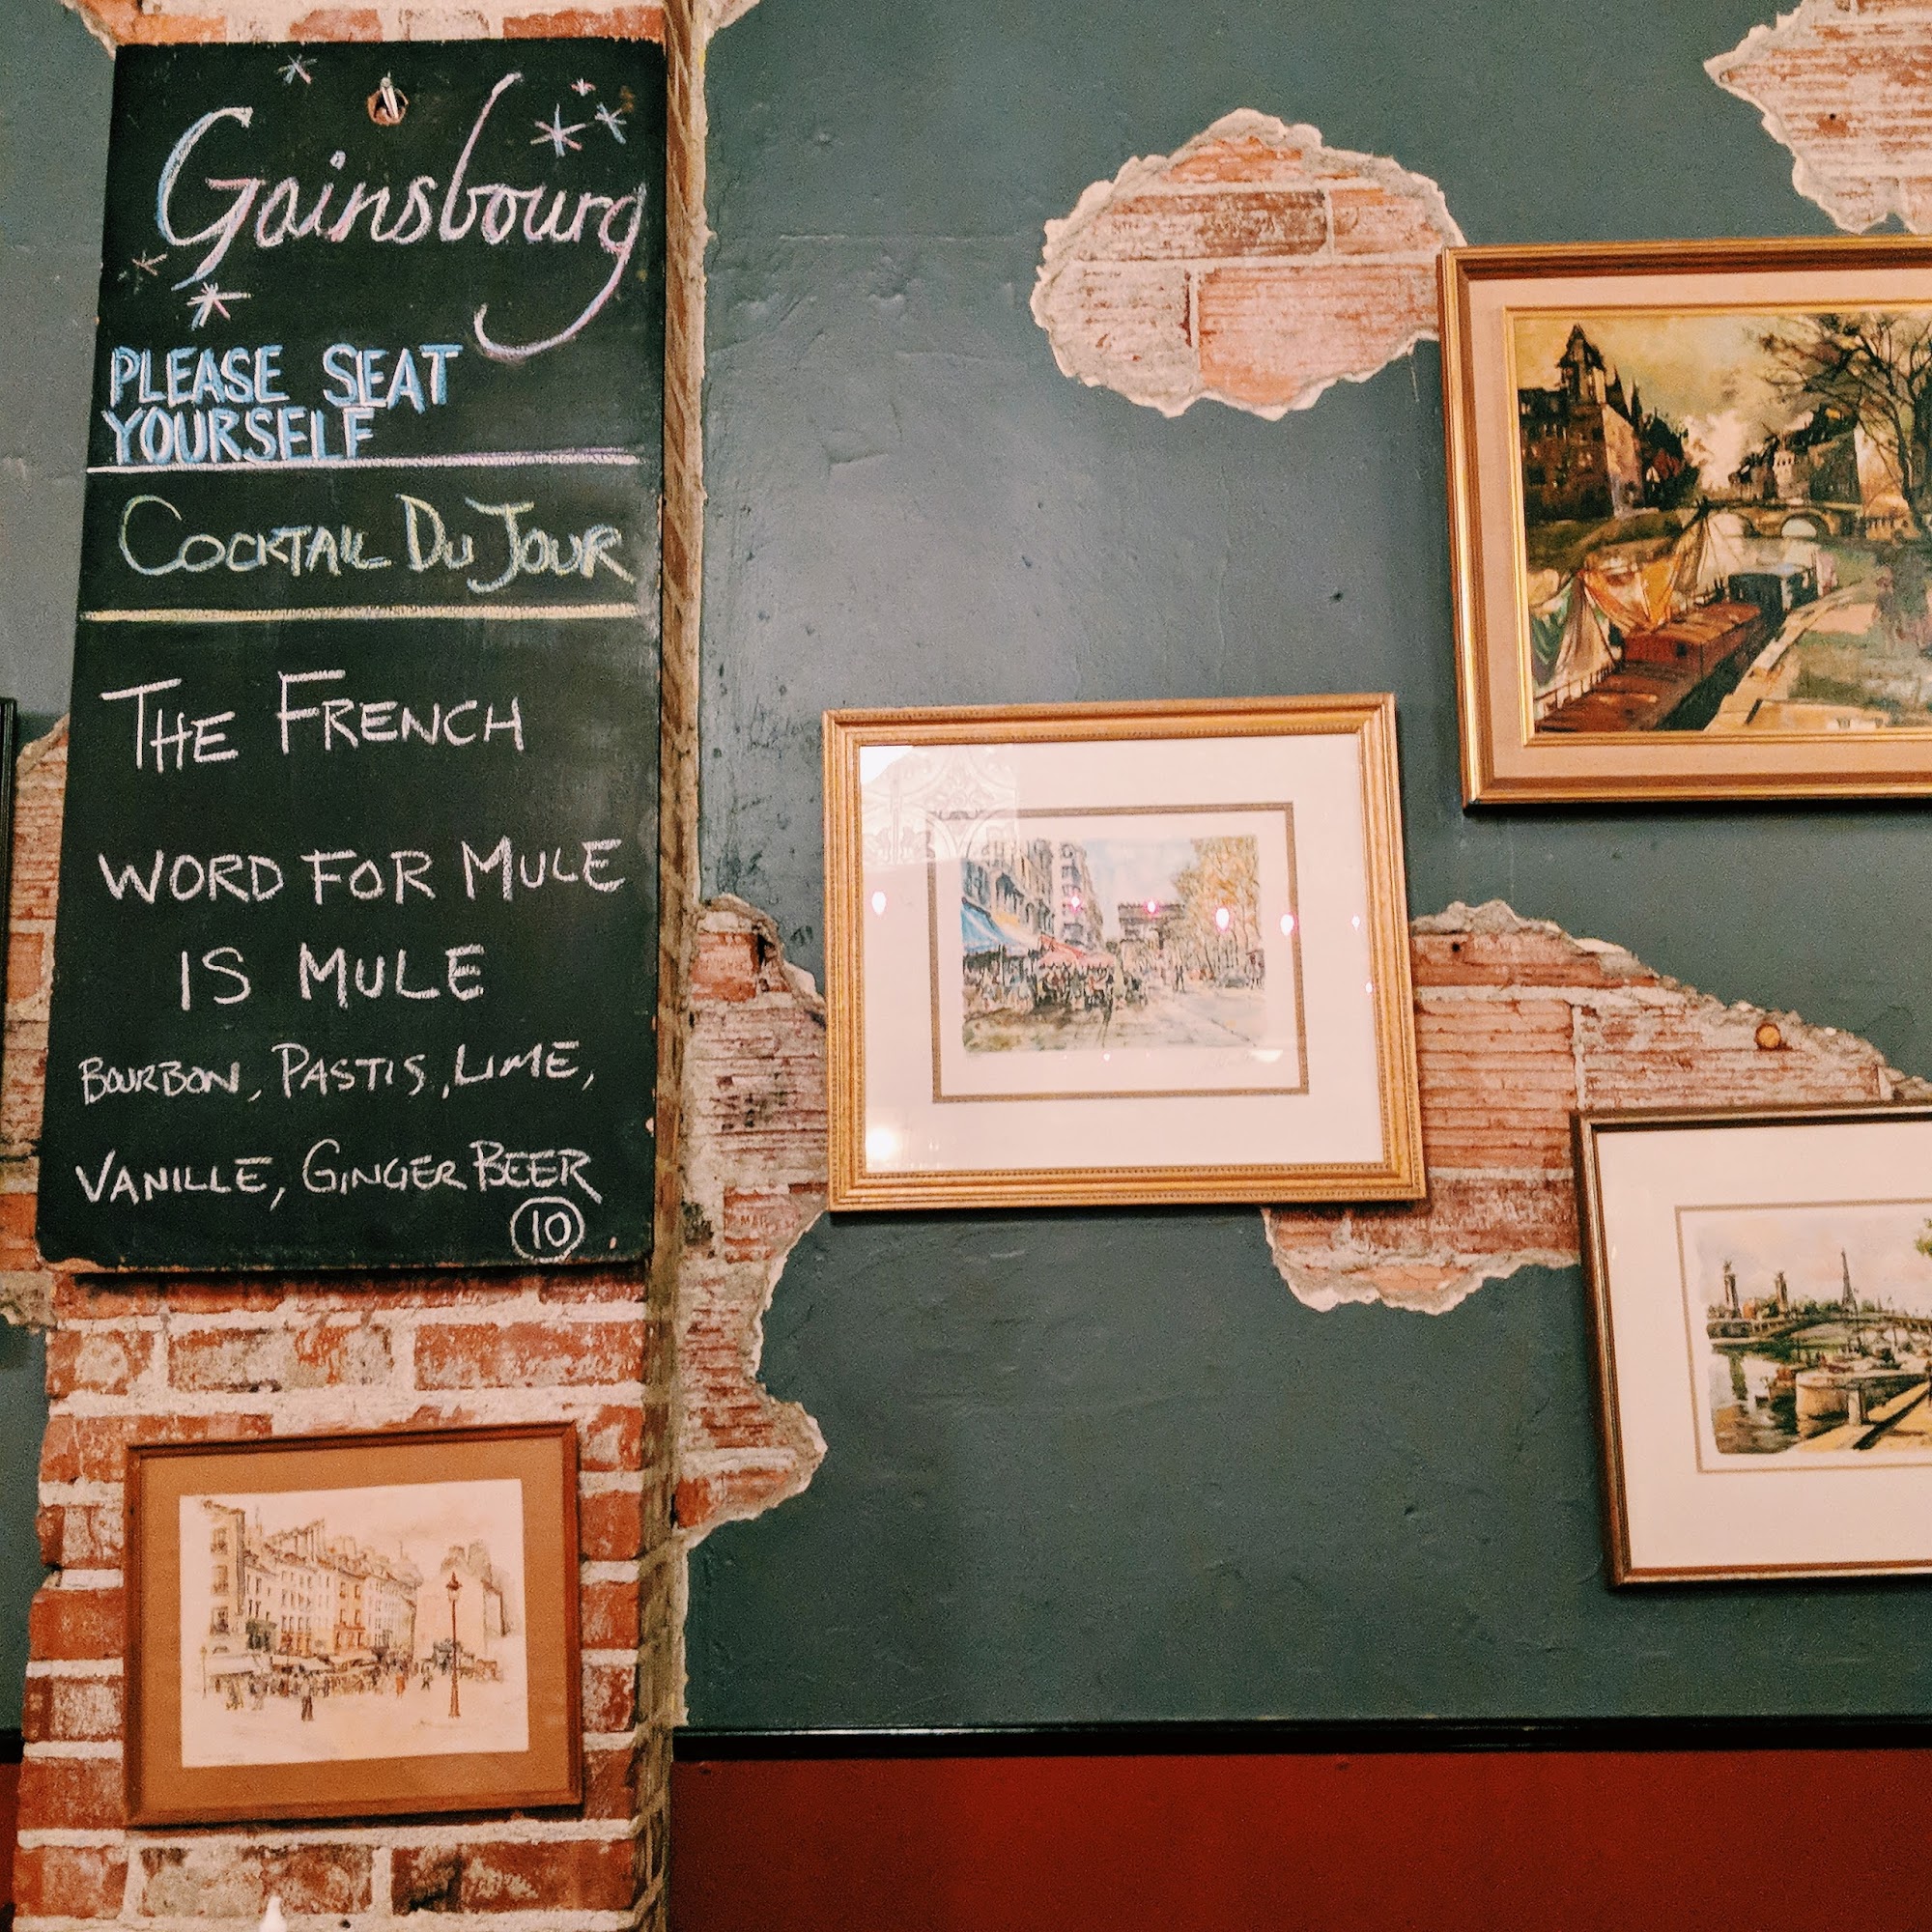 Gainsbourg
PLEASE SEAT
YOURSELF
COCKTAIL DU JOUR
THE FRENCH
WORD FOR MULE
IS MULE
BOURBON, PASTIS, LIME,
VANILLE, GINGER BEER
10